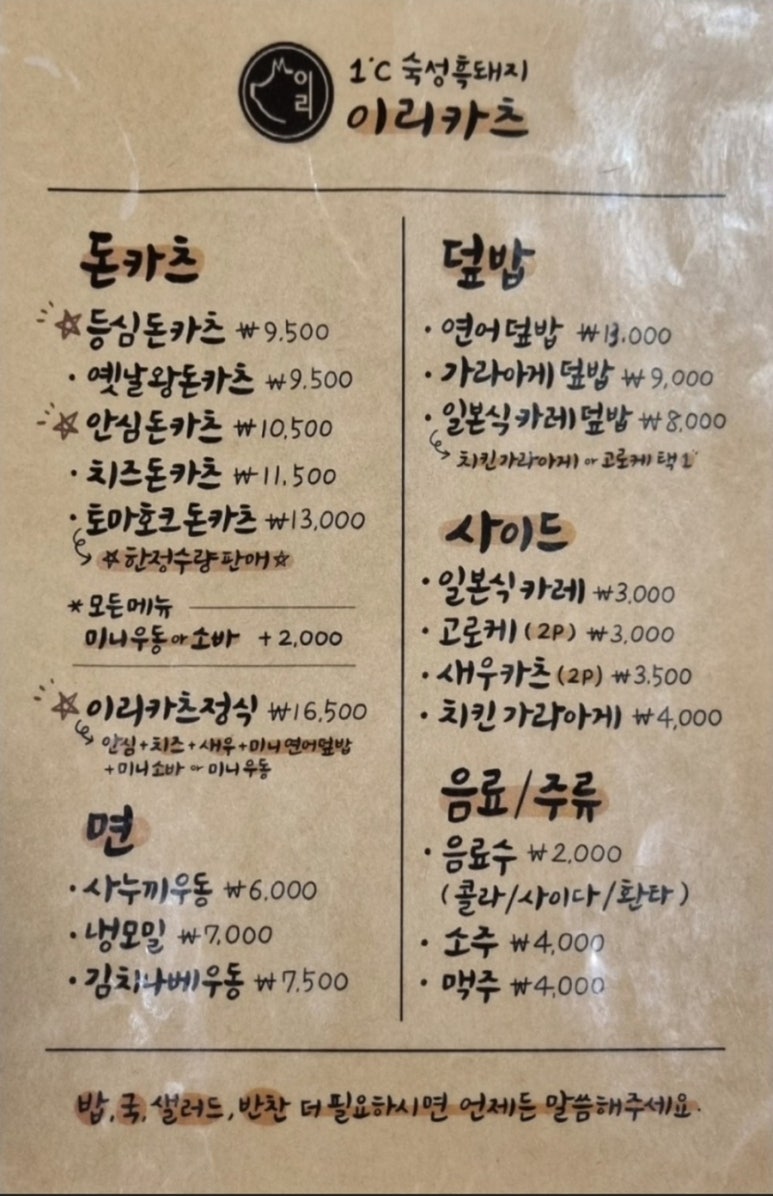 이리
1°C 숙성흑돼지
이리카츠
돈카츠
☆등심돈카츠 ₩9,500
· 옛날왕돈카츠 ₩9,500
☆안심돈카츠 ₩10,500
· 치즈돈카츠 ₩11,500
· 토마호크돈카츠 ₩13,000
☆한정수량판매☆
*모든메뉴
미니우동or소바 +2,000
☆이리카츠정식 ₩16,500
안심+치즈+새우+미니연어덮밥
+미니소바 or 미니우동
면
· 사누끼우동 ₩6,000
· 냉모밀 ₩7,000
· 김치나베우동 ₩7,500
덮밥
· 연어덮밥 ₩13,000
· 가라아게덮밥 ₩9,000
· 일본식카레덮밥 ₩8,000
치킨가라아게 or 고로케 택1
사이드
· 일본식카레 ₩3,000
· 고로케(2P) ₩3,000
· 새우카츠(2P) ₩3,500
· 치킨가라아게 ₩4,000
음료/주류
· 음료수 ₩2,000
(콜라/사이다/환타)
· 소주 ₩4,000
· 맥주 ₩4,000
밥,국,샐러드,반찬 더 필요하시면 언제든 말씀해주세요.